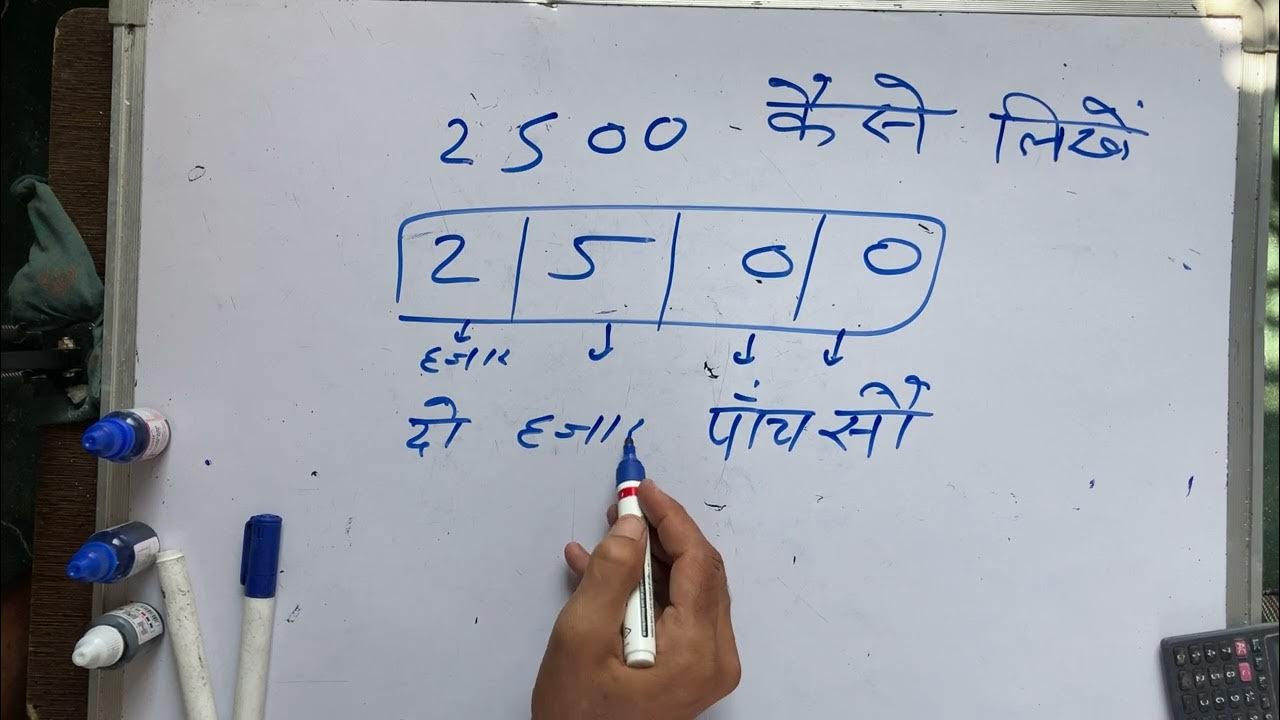 2500 कैसे लिखें
2 5 0 0
हजार
दो हजार पांच सौ